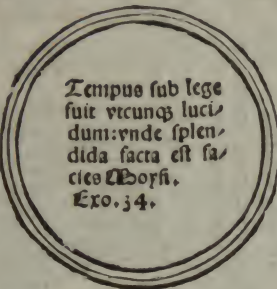 Tempus sub lege
fuit vtcunqꝫ luci⸗
dum:vnde splen⸗
dida facta est fa⸗
cies Moysi.
Exo.34.